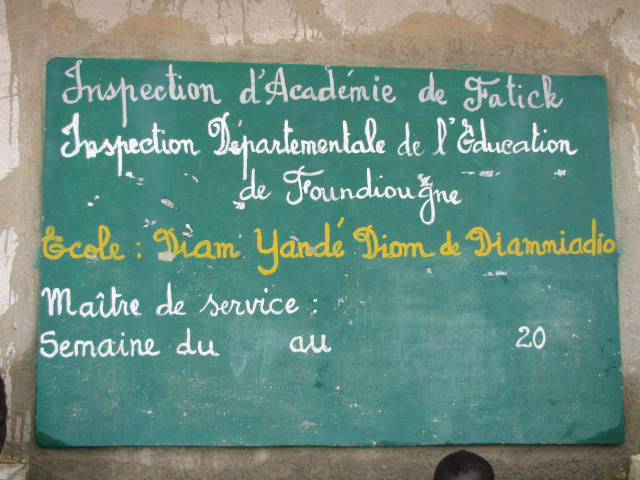 Inspection d'Académie de Fatick
Inspection Départementale de l'Education
de Foundiougne
Ecole : Diam Yandé Diom de Diamniadio
Maître de service :
Semaine du au 20